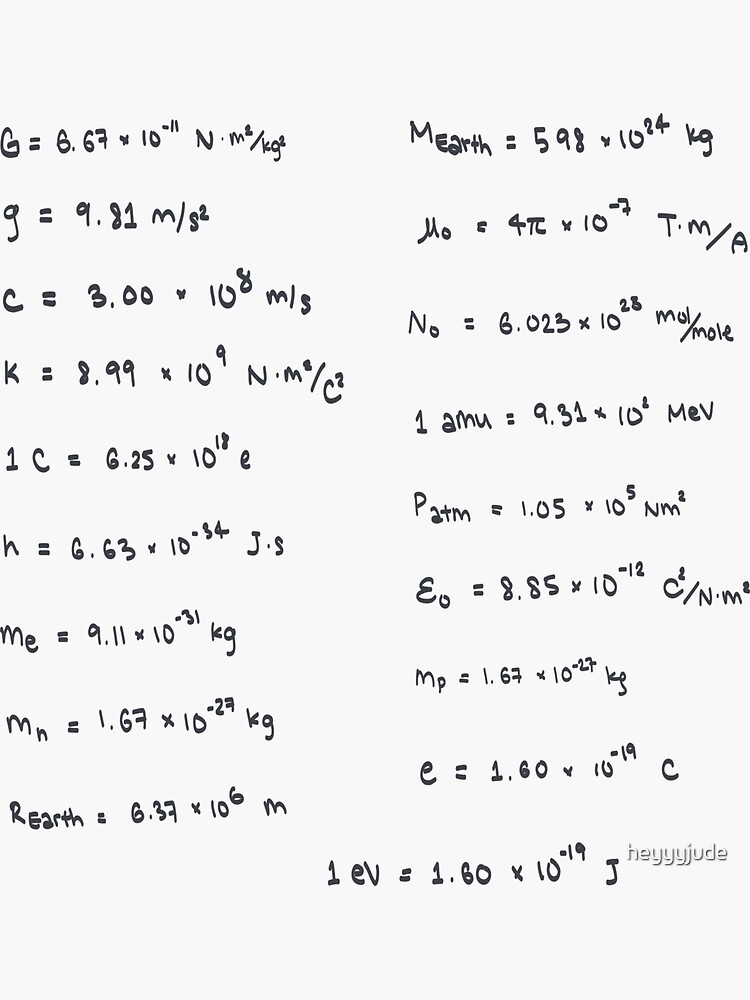 G = 6.67 × 10⁻¹¹ N·m²/kg²
g = 9.81 m/s²
c = 3.00 × 10⁸ m/s
k = 8.99 × 10⁹ N·m²/C²
1 C = 6.25 × 10¹⁸ e
h = 6.63 × 10⁻³⁴ J·s
mₑ = 9.11 × 10⁻³¹ kg
mₙ = 1.67 × 10⁻²⁷ kg
R_Earth = 6.37 × 10⁶ m
M_Earth = 598 × 10²⁴ kg
μ₀ = 4π × 10⁻⁷ T·m/A
N₀ = 6.023 × 10²³ mol/mole
1 amu = 9.31 × 10² MeV
P_atm = 1.05 × 10⁵ Nm²
ε₀ = 8.85 × 10⁻¹² C²/N·m²
mₚ = 1.67 × 10⁻²⁷ kg
e = 1.60 × 10⁻¹⁹ C
1 eV = 1.60 × 10⁻¹⁹ J
heyyyjude